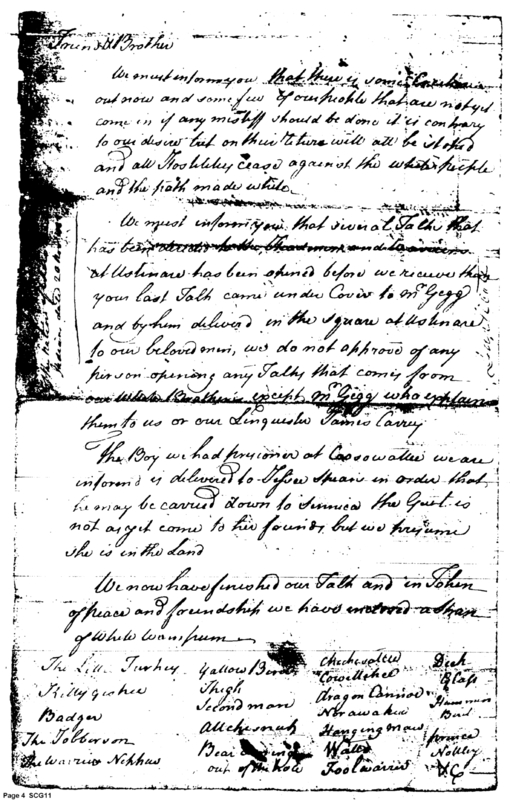 Friend & Brother
We must inform you that there is some
out now and some few of our people that are not yet
come in if any mistiff should be done it is contrary
to our desire but on their return will all be stoped
and all Hostilities cease against the white people
and the path made white
We must inform you that several Talks that
has been directed to the Head men and warriors
at Ustinare has been opened before we recieve them
your last Talk came under Cover to Mr Gegg
and by him delivered in the square at Ustinare
to our beloved men, we do not approve of any
person opening any Talks that comes from
our White Brothers except Mr Gegg who explain
them to us or our Linguester James Carrey
The Boy we had prisoner at Coosowattee we are
inform'd is delivered to in order that
he may be carried down to Sinnica the Girl is
not as yet come to her friends but we presume
she is in the Land
We now have finished our Talk and in Token
of peace and friendship we have a
of White Wampum
The Little Turkey Yallow Bird Dick
Thigh Blast
Badger Second man Dragon Cannoe
The Bird
The Warrior Bear Hanging maw prince
out of the Hole Fool warrior Notley
&C
Page 4 SCG11